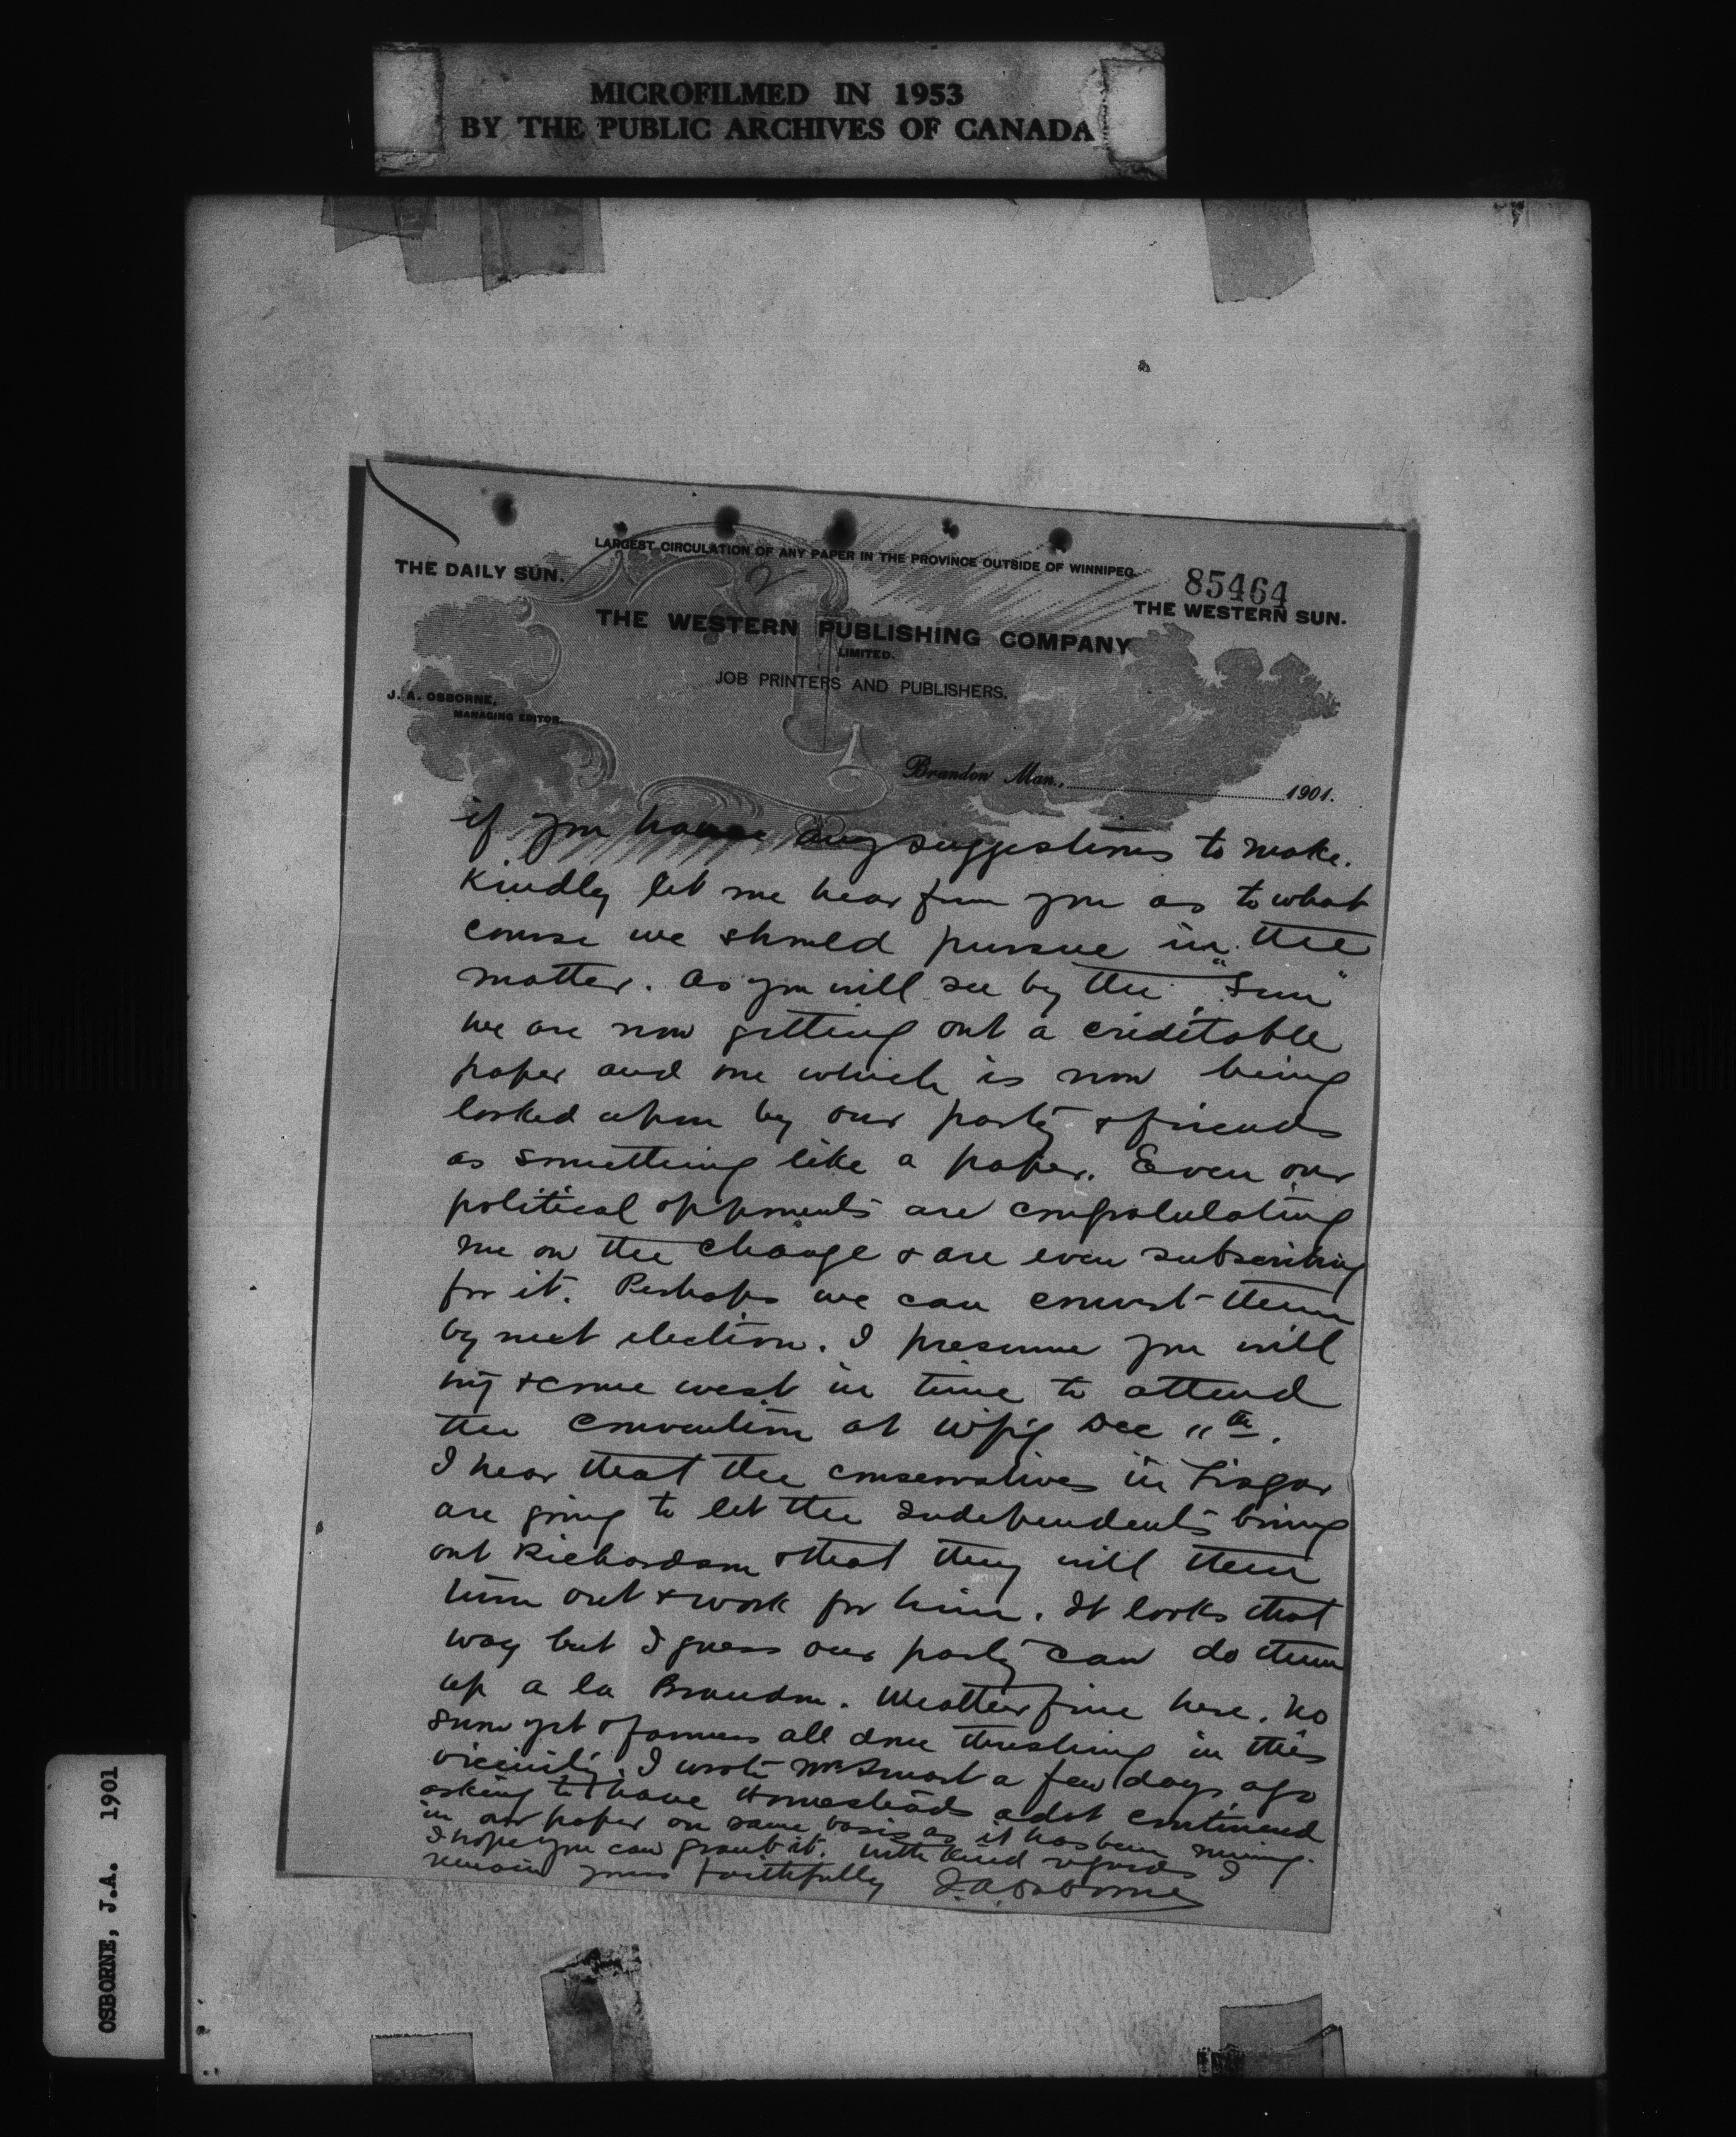 MICROFILMED IN 1953
BY THE PUBLIC ARCHIVES OF CANADA
LARGEST CIRCULATION OF ANY PAPER IN THE PROVINCE OUTSIDE OF WINNIPEG.
THE DAILY SUN.
2
85464
THE WESTERN SUN.
THE WESTERN PUBLISHING COMPANY
LIMITED.
JOB PRINTERS AND PUBLISHERS.
J. A. OSBORNE,
MANAGING EDITOR.
Brandon Man., 1901.
if you have any suggestions to make.
Kindly let me hear from you as to what
course we should pursue in the
matter. As you will see by the "Sun"
we are now getting out a creditable
paper and one which is now being
looked upon by our party & friends
as something like a paper. Even our
political opponents are congratulating
me on the change & are even subscribing
for it. Perhaps we can convert them
by next election. I presume you will
try & come west in time to attend
the convention at Wpg Dec 11th.
I hear that the conservatives in Lisgar
are going to let the Independents bring
out Richardson & that they will then
turn out & work for him. It looks that
way but I guess our party can do them
up a la Brandon. Weather fine here. No
snow yet & farmers all done threshing in this
vicinity. I wrote Mr Smart a few days ago
asking to have Homesteads advt continued
in our paper on same basis as it has been running.
I hope you can grant it. With kind regards I
remain yours faithfully J.A. Osborne
OSBORNE, J.A. 1901